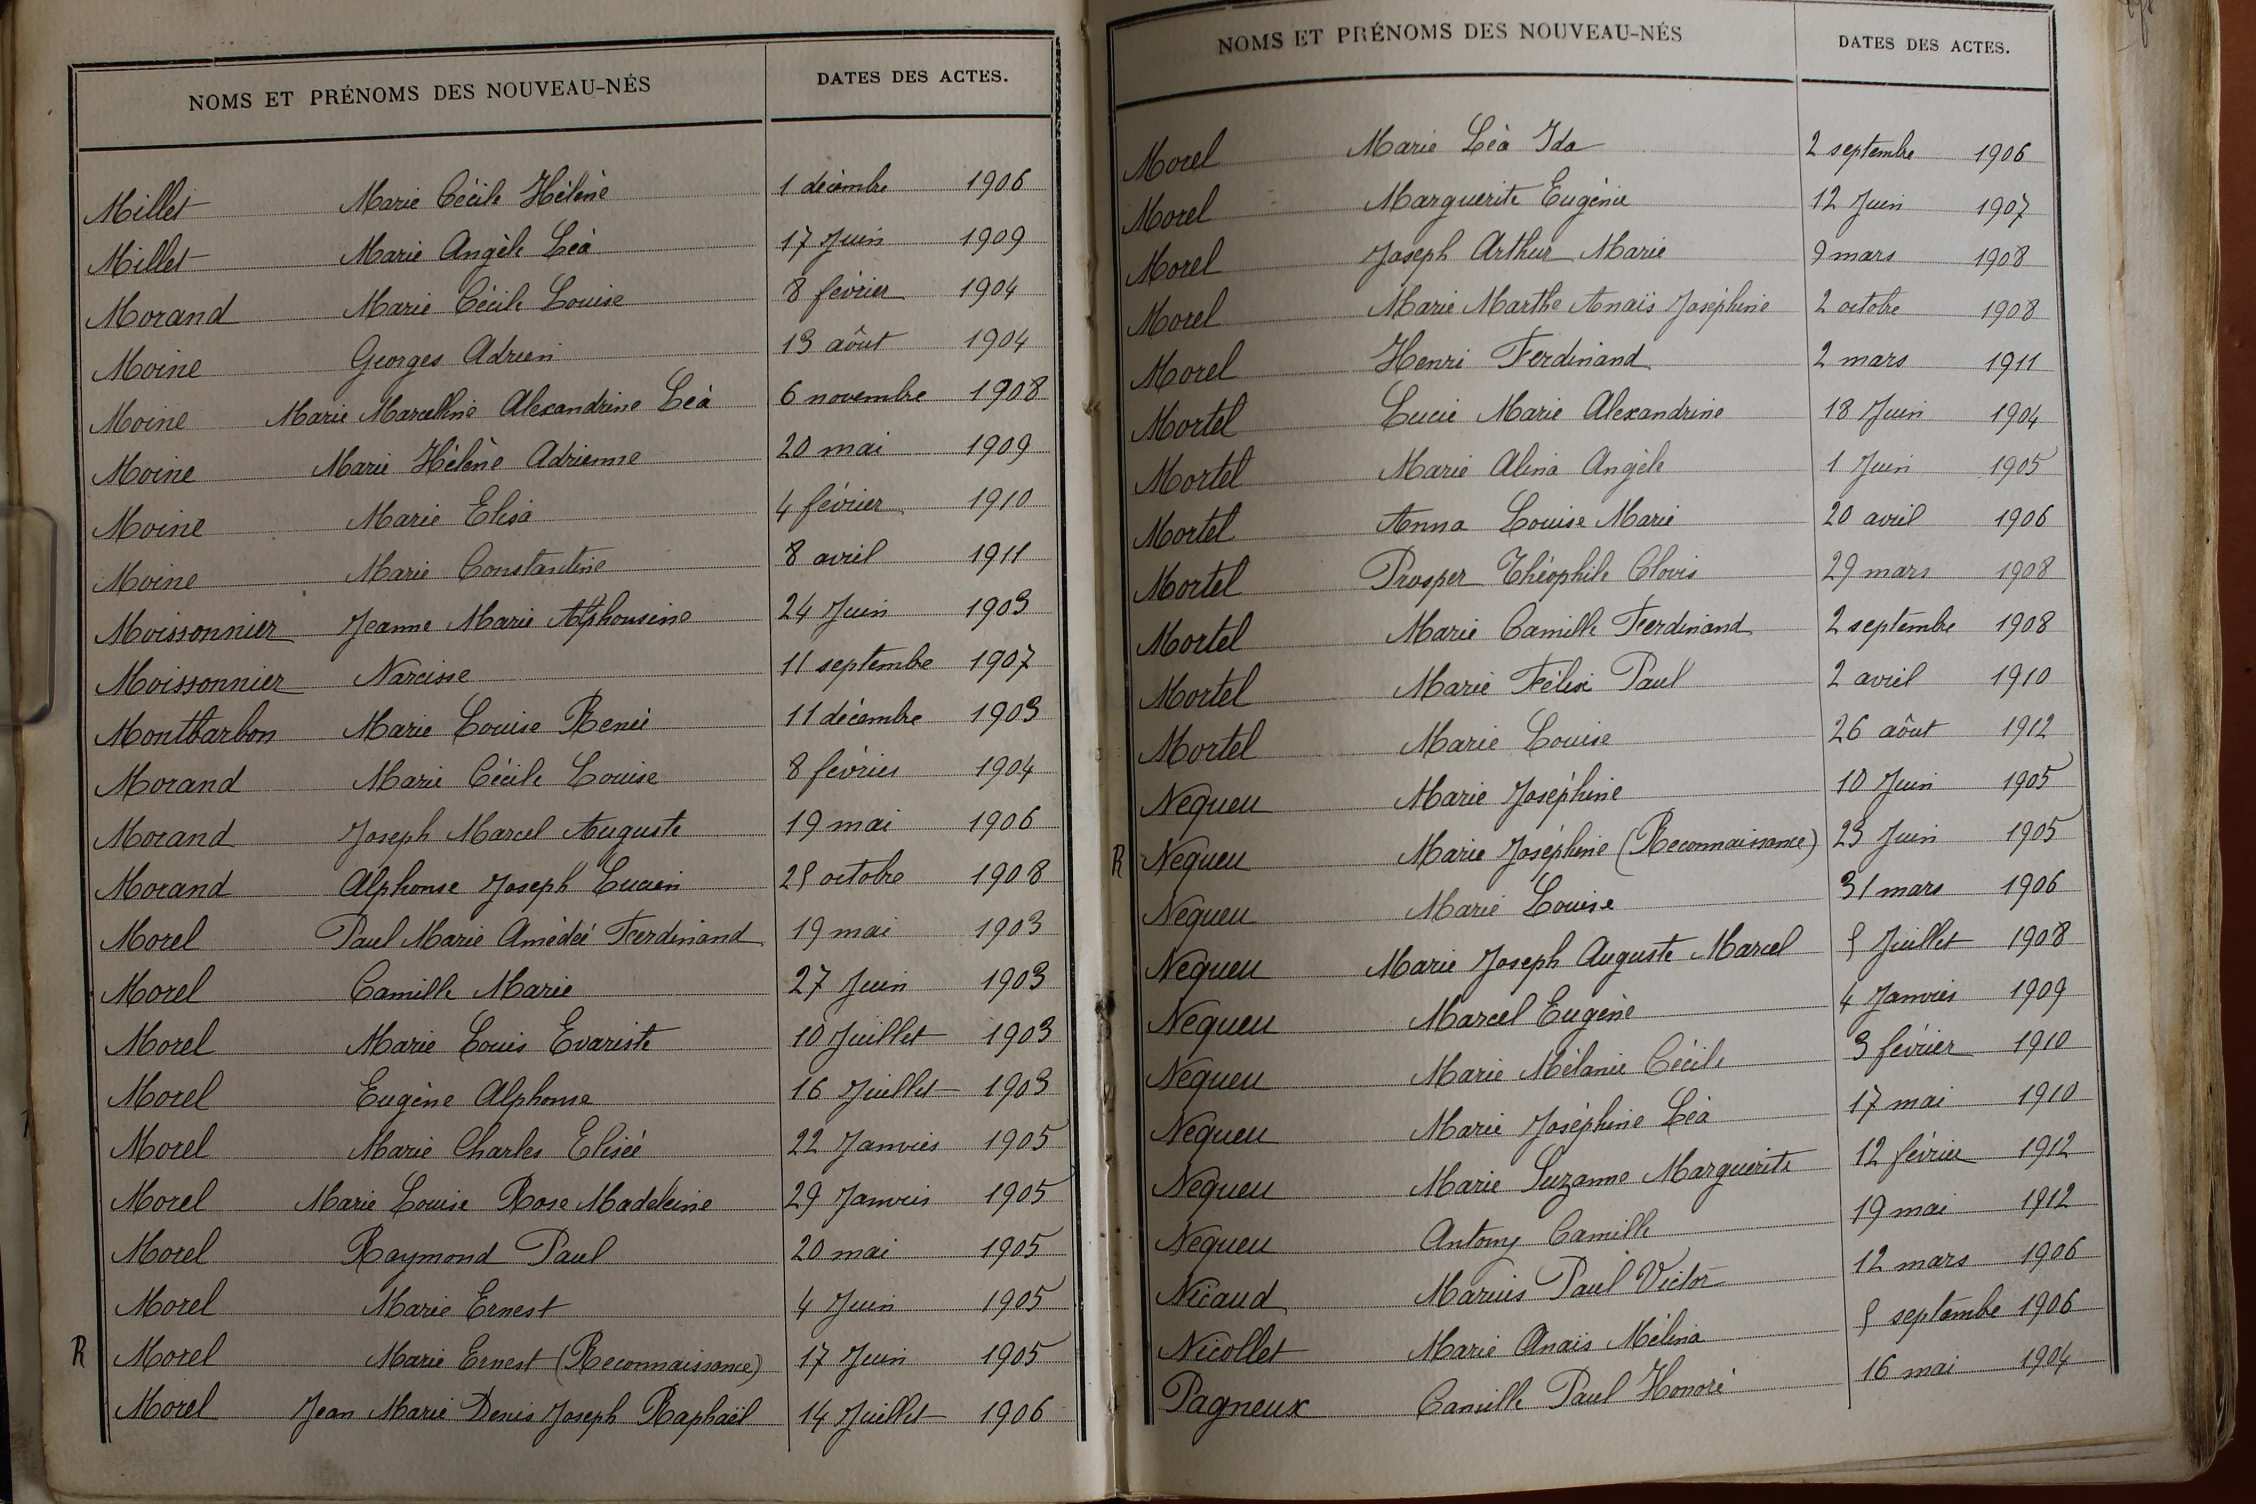 NOMS ET PRÉNOMS DES NOUVEAU-NÉS DATES DES ACTES.
Millet Marie Cécile Hélène 1 décembre 1906
Millet Marie Angèle Léa 17 Juin 1909
Morand Marie Cécile Louise 8 février 1904
Moine Georges Adrien 13 aôut 1904
Moine Marie Marcelline Alexandrine Léa 6 novembre 1908
Moine Marie Hélène Adrienne 20 mai 1909
Moine Marie Elisa 4 février 1910
Moine Marie Constantine 8 avril 1911
Moissonnier Jeanne Marie Alphonsine 24 Juin 1903
Moissonnier Narcisse 11 septembre 1907
Montbarbon Marie Louise Renée 11 décembre 1903
Morand Marie Cécile Louise 8 février 1904
Morand Joseph Marcel Auguste 19 mai 1906
Morand Alphonse Joseph Lucien 25 octobre 1908
Morel Paul Marie Amédée Ferdinand 19 mai 1903
Morel Camille Marie 27 Juin 1903
Morel Marie Louis Evariste 10 Juillet 1903
Morel Eugène Alphonse 16 Juillet 1903
Morel Marie Charles Elisée 22 Janvier 1905
Morel Marie Louise Rose Madeleine 29 Janvier 1905
Morel Raymond Paul 20 mai 1905
Morel Marie Ernest 4 Juin 1905
R Morel Marie Ernest (Reconnaissance) 17 Juin 1905
Morel Jean Marie Denis Joseph Raphaël 14 Juillet 1906
NOMS ET PRÉNOMS DES NOUVEAU-NÉS DATES DES ACTES.
Morel Marie Léa Ida 2 septembre 1906
Morel Marguerite Eugénie 12 Juin 1907
Morel Joseph Arthur Marie 9 mars 1908
Morel Marie Marthe Anaïs Joséphine 2 octobre 1908
Morel Henri Ferdinand 2 mars 1911
Mortel Lucie Marie Alexandrine 18 Juin 1904
Mortel Marie Alina Angèle 1 Juin 1905
Mortel Anna Louise Marie 20 avril 1906
Mortel Prosper Théophile Clovis 29 mars 1908
Mortel Marie Camille Ferdinand 2 septembre 1908
Mortel Marie Félix Paul 2 avril 1910
Mortel Marie Louise 26 aôut 1912
Nequeu Marie Joséphine 10 Juin 1905
R Nequeu Marie Joséphine (Reconnaissance) 23 Juin 1905
Nequeu Marie Louise 31 mars 1906
Nequeu Marie Joseph Auguste Marcel 5 Juillet 1908
Nequeu Marcel Eugène 4 Janvier 1909
Nequeu Marie Mélanie Cécile 3 février 1910
Nequeu Marie Joséphine Léa 17 mai 1910
Nequeu Marie Suzanne Marguerite 12 février 1912
Nequeu Antony Camille 19 mai 1912
Nicaud Marius Paul Victor 12 mars 1906
Nicollet Marie Anaïs Mélina 5 septembre 1906
Pagneux Camille Paul Honoré 16 mai 1904